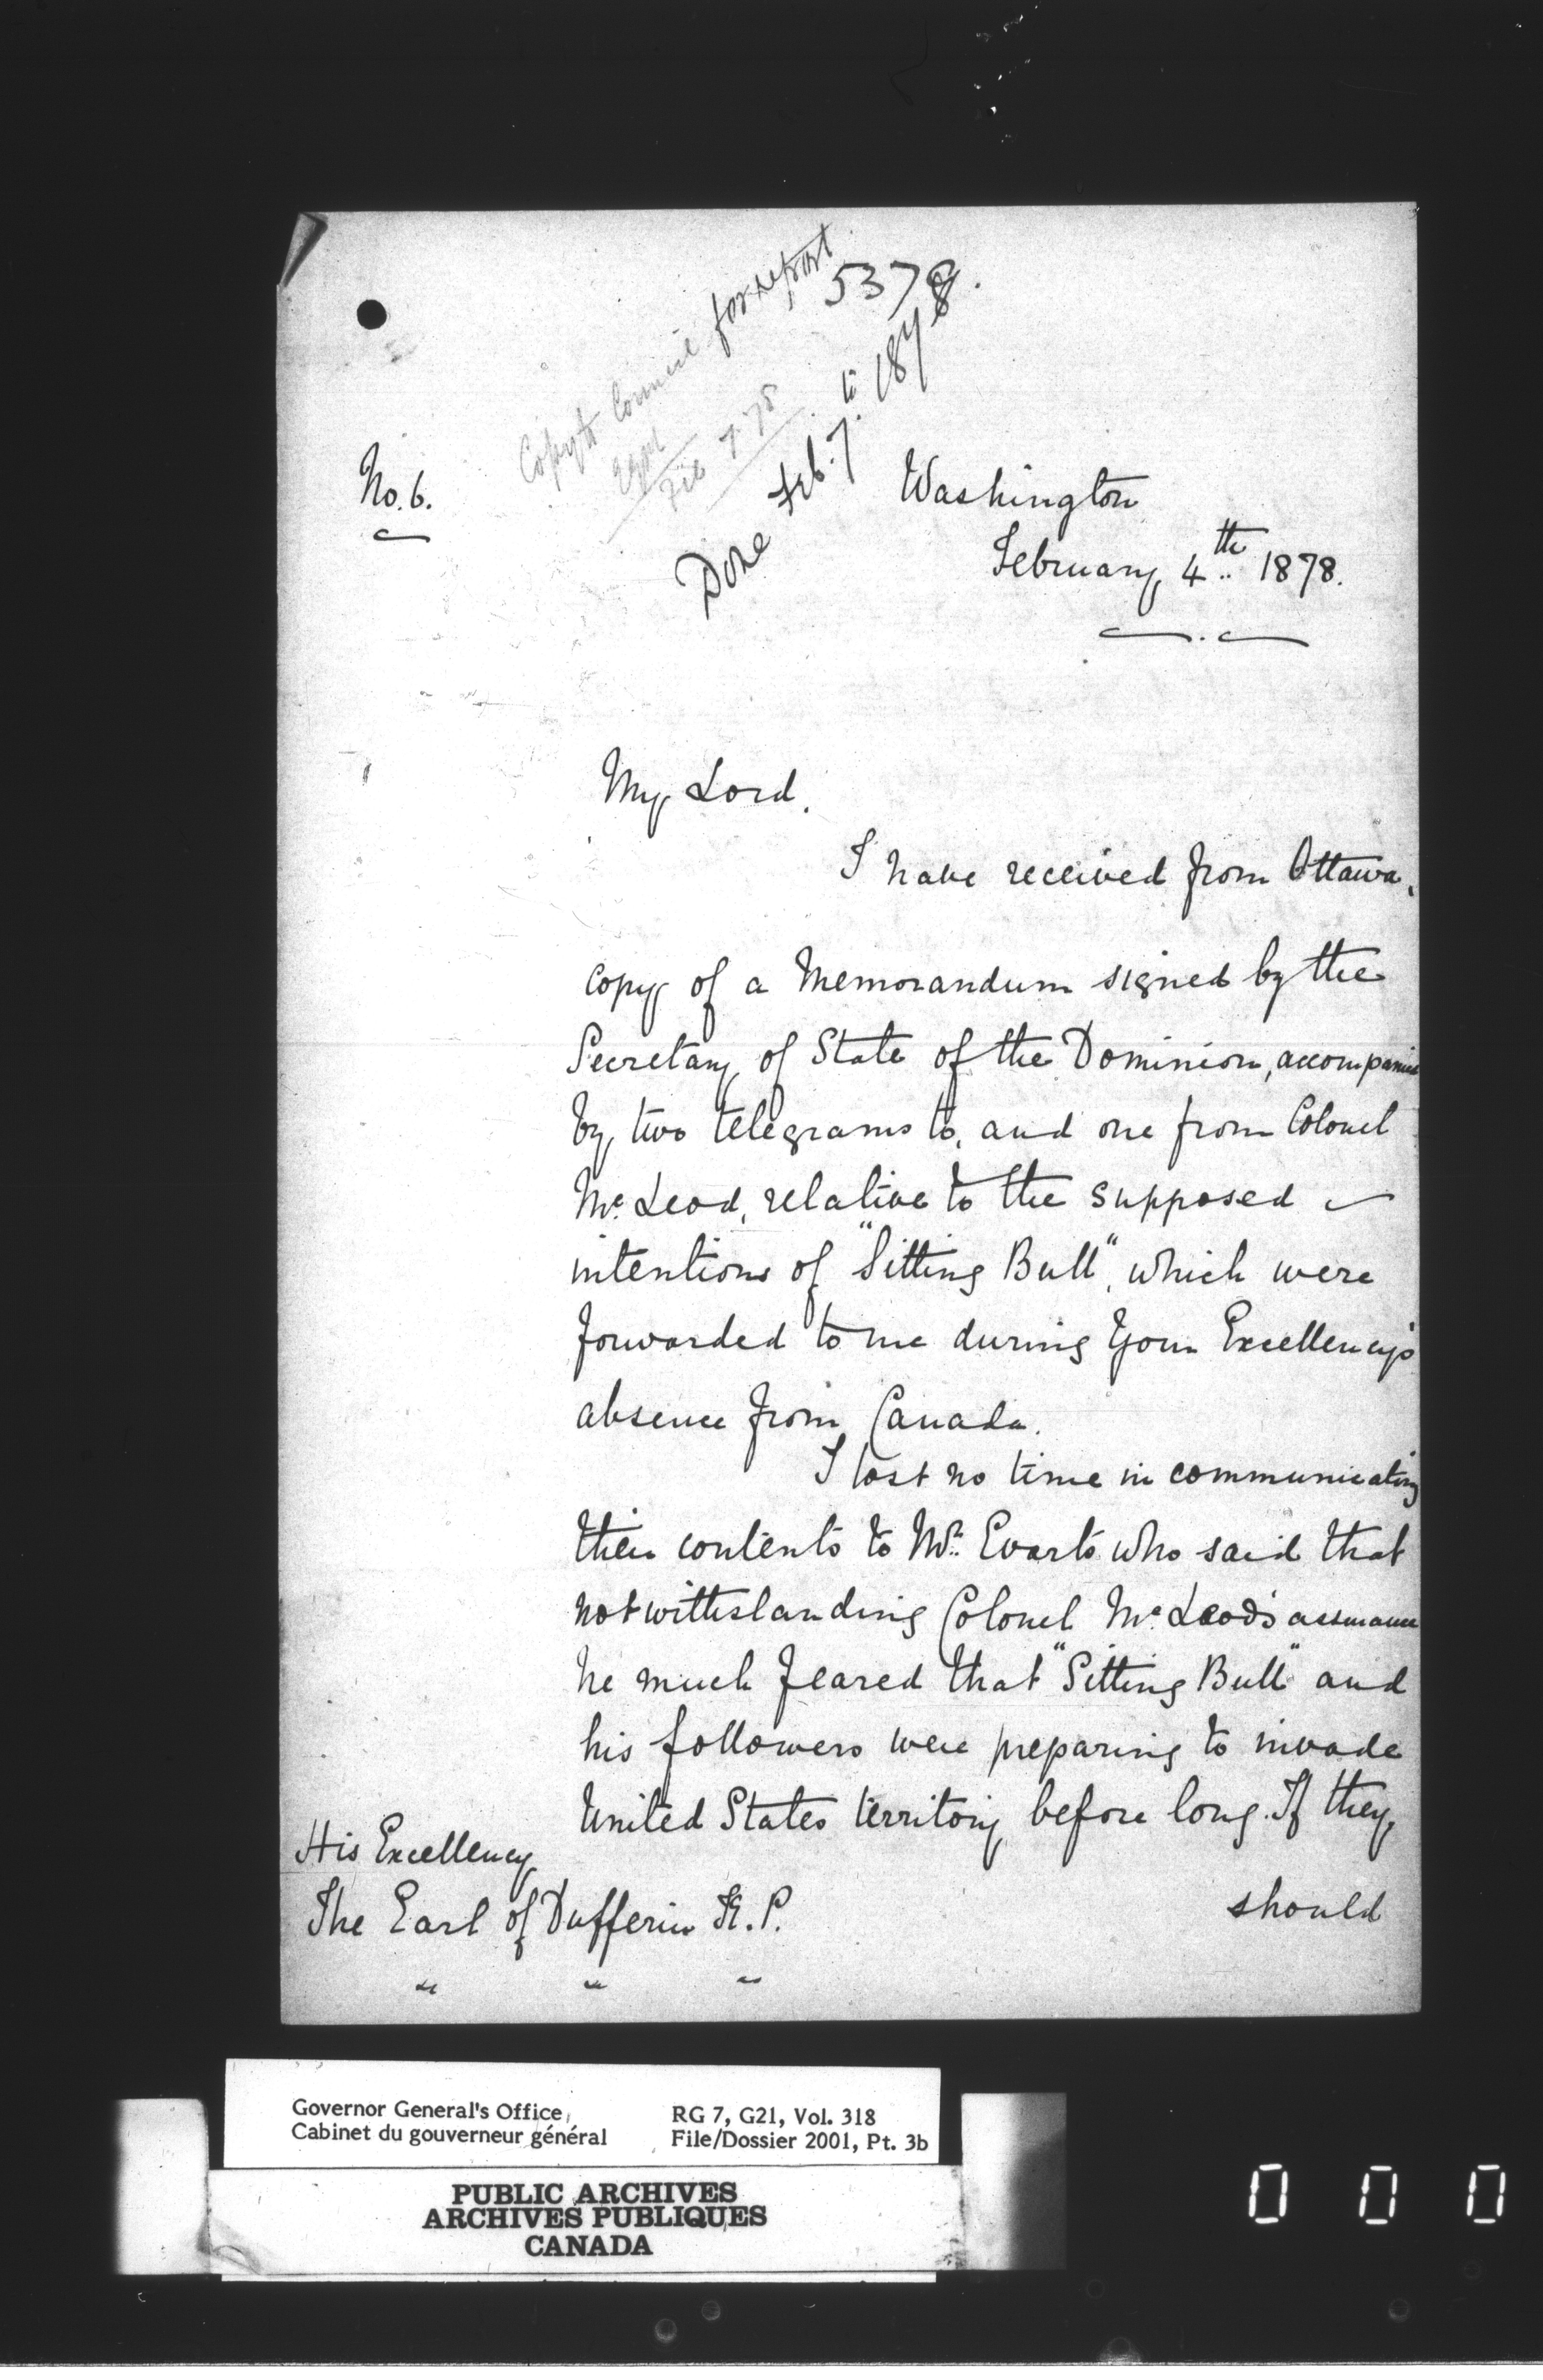 5378.
Copy to Council for report
Feb 7. 78
Done Feb. 7. 1878
No. 6.
Washington
February 4th 1878.
My Lord,
I have received from Ottawa,
copy of a Memorandum signed by the
Secretary of State of the Dominion, accompanied
by two telegrams to, and one from Colonel
Mc Leod, relative to the supposed
intentions of "Sitting Bull", which were
forwarded to me during Your Excellency's
absence from Canada.
I lost no time in communicating
their contents to Mr. Evarts who said that
notwithstanding Colonel Mc Leod's assurance
he much feared that "Sitting Bull" and
his followers were preparing to invade
United States territory before long. If they
should
His Excellency
The Earl of Dufferin K. P.
Governor General's Office
Cabinet du gouverneur général
RG 7, G21, Vol. 318
File/Dossier 2001, Pt. 3b
PUBLIC ARCHIVES
ARCHIVES PUBLIQUES
CANADA
0 0 0